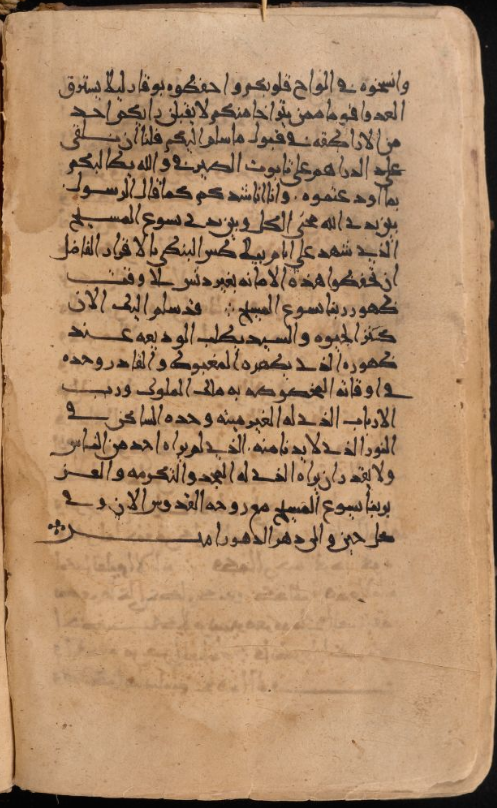 وانسخوه في الواح قلوبكم واحفظوه بوقار ليلا يسترق
العدو اقواما ممن يتواجا منكم لا يقبل رايكم احد
من الاراطقه في قبول ما سلم اليكم فلنا ان نلقي
علي الدراهم علي تابوت الصيرفي والله يطالبكم
بما اودعتموه وانا اناشدكم كما قال الرسول
بين يدي الله محيي الكل وبين يدي يسوع المسيح
الذي شهد علي ايام بيلاطس البنطي بالاقرار الفاضل
ان تحفظوا هذه الامانه بغير دنس الا وقت
ظهور ربنا يسوع المسيح قد سلم اليك الان
كنز الحيوه والسيد يطلب الوديعه عند
ظهوره الذي يظهره المغبوط والقادر وحده
في اوقاته المخصوصه به ملك الملوك ورب
الارباب الذي له الغير ميته وحده الساكن في
النور الذي لا يدنا منه الذي لم يراه احد من الناس
ولا يقدر ان يراه الذي له المجد والتكرمه والعز
بربنا يسوع المسيح مع روحه القدوس الان وفي
كل حين والي دهر الدهور امين